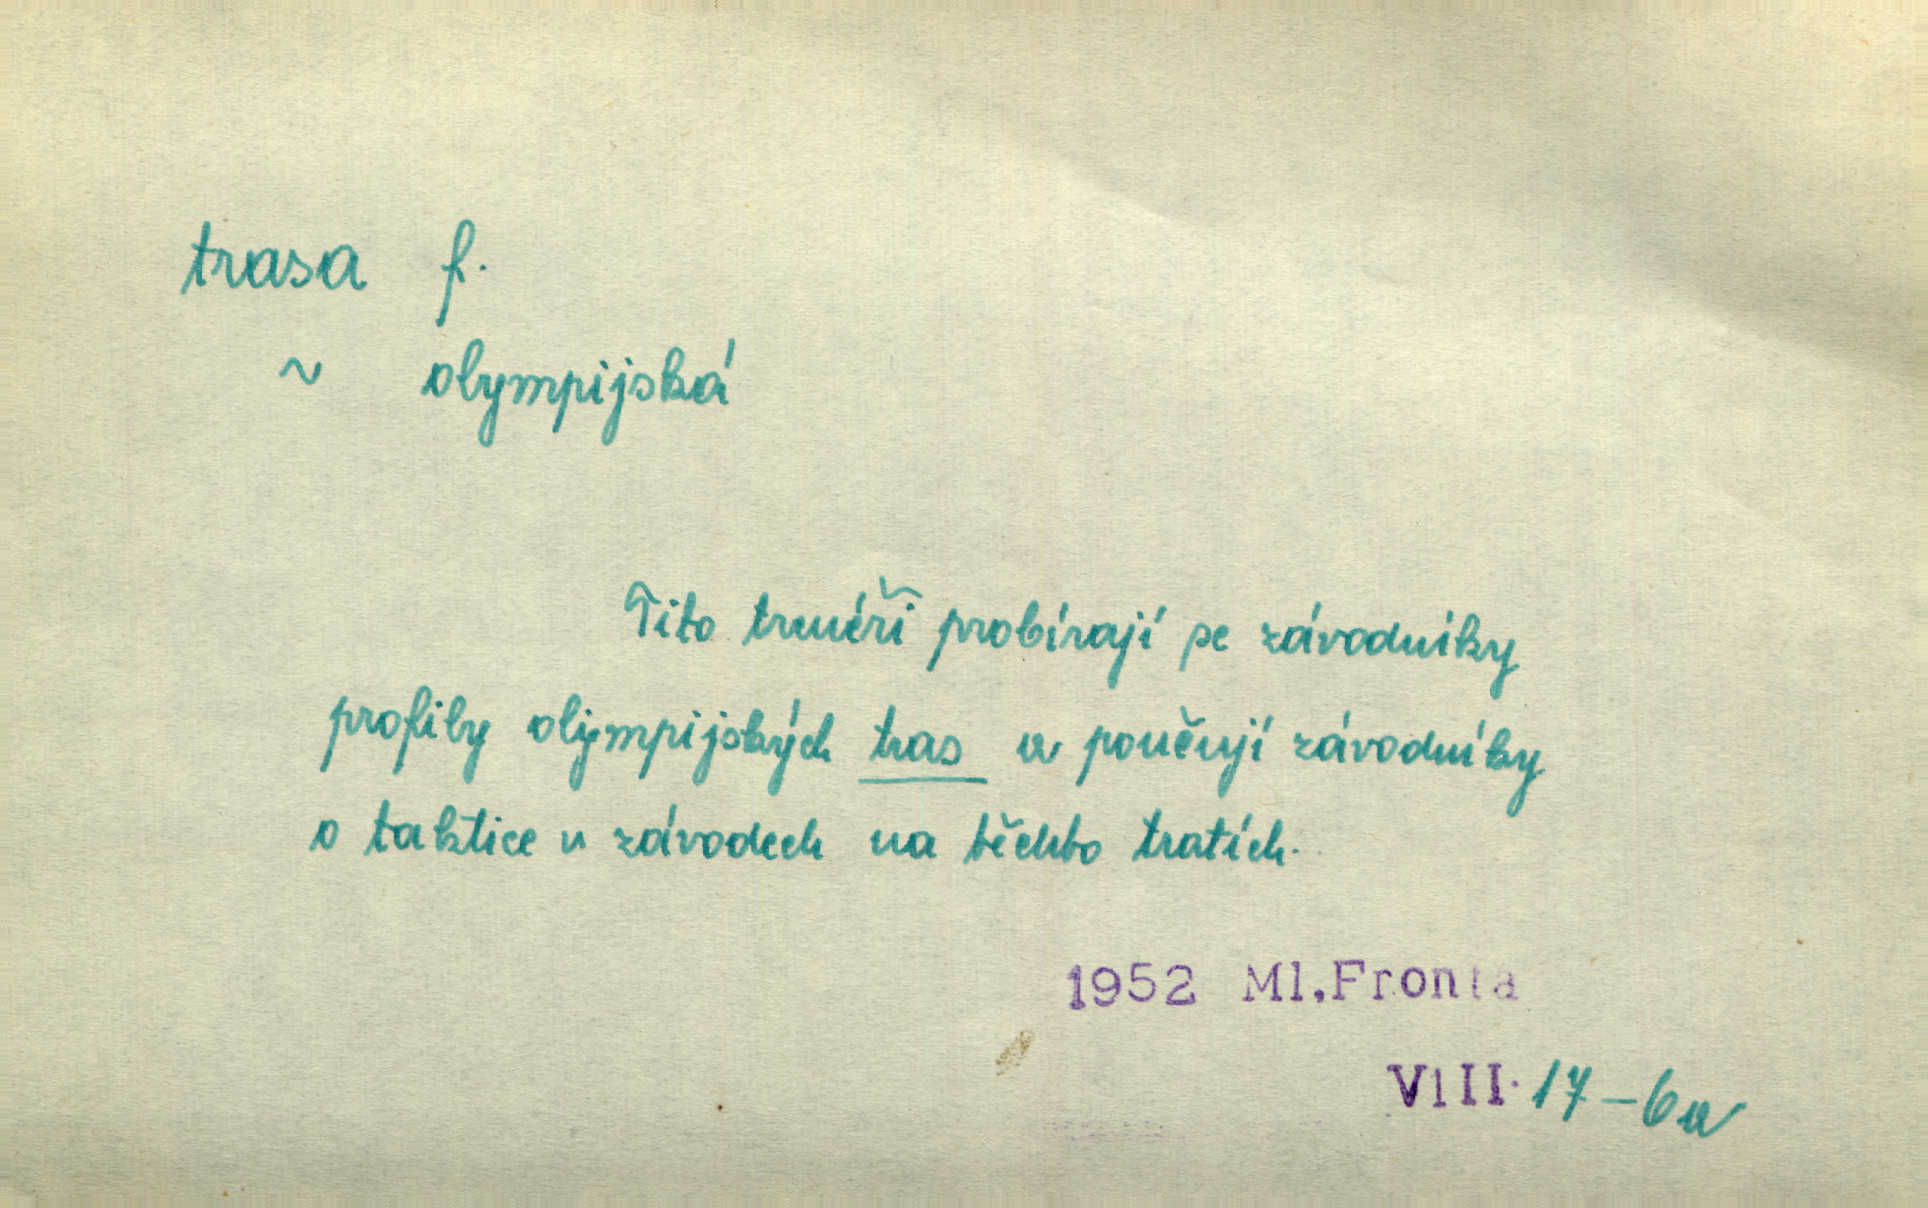 trasa f.
~ olympijská
Tito trenéři probírají se závodníky
profily olympijských tras a poučují závodníky
o taktice v závodech na těchto tratích.
1952 Ml.Fronta
VIII. 17-6a